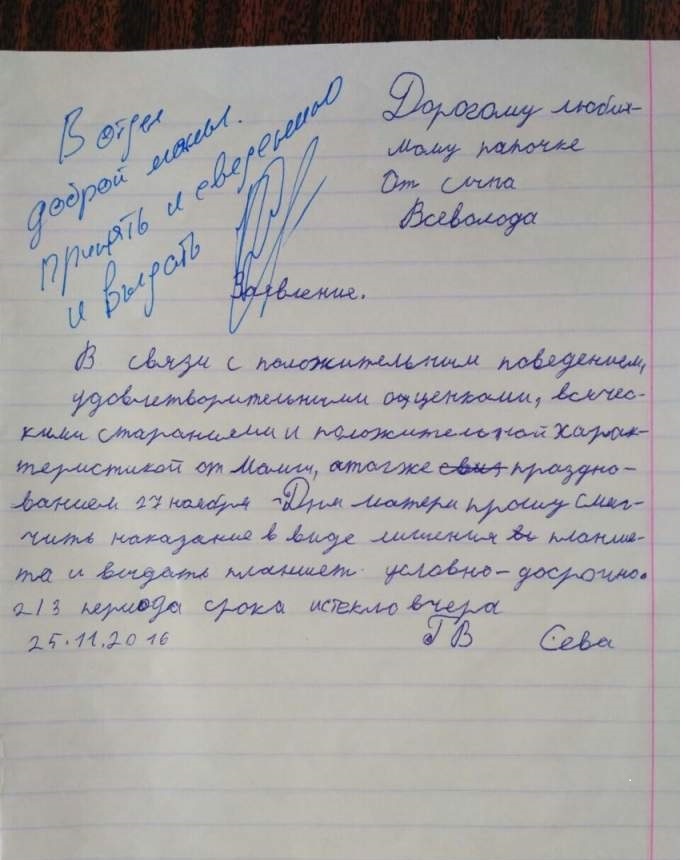 В отдел
доброй мамы.
принять к сведению
и выдать
Дорогому любим-
мому папочке
От сына
Всеволода
Заявление.
В связи с положительным поведением,
удовлетворительными оценками, всячес-
кими стараниями и положительной харак-
теристикой от Мамы, атакже праздно-
ванием 27 ноября - Дня матери прошу смяг-
чить наказание в виде лишения планше-
та и выдать планшет условно-досрочно.
2/3 периода срока истекло вчера
25.11.2016 ГВ Сева